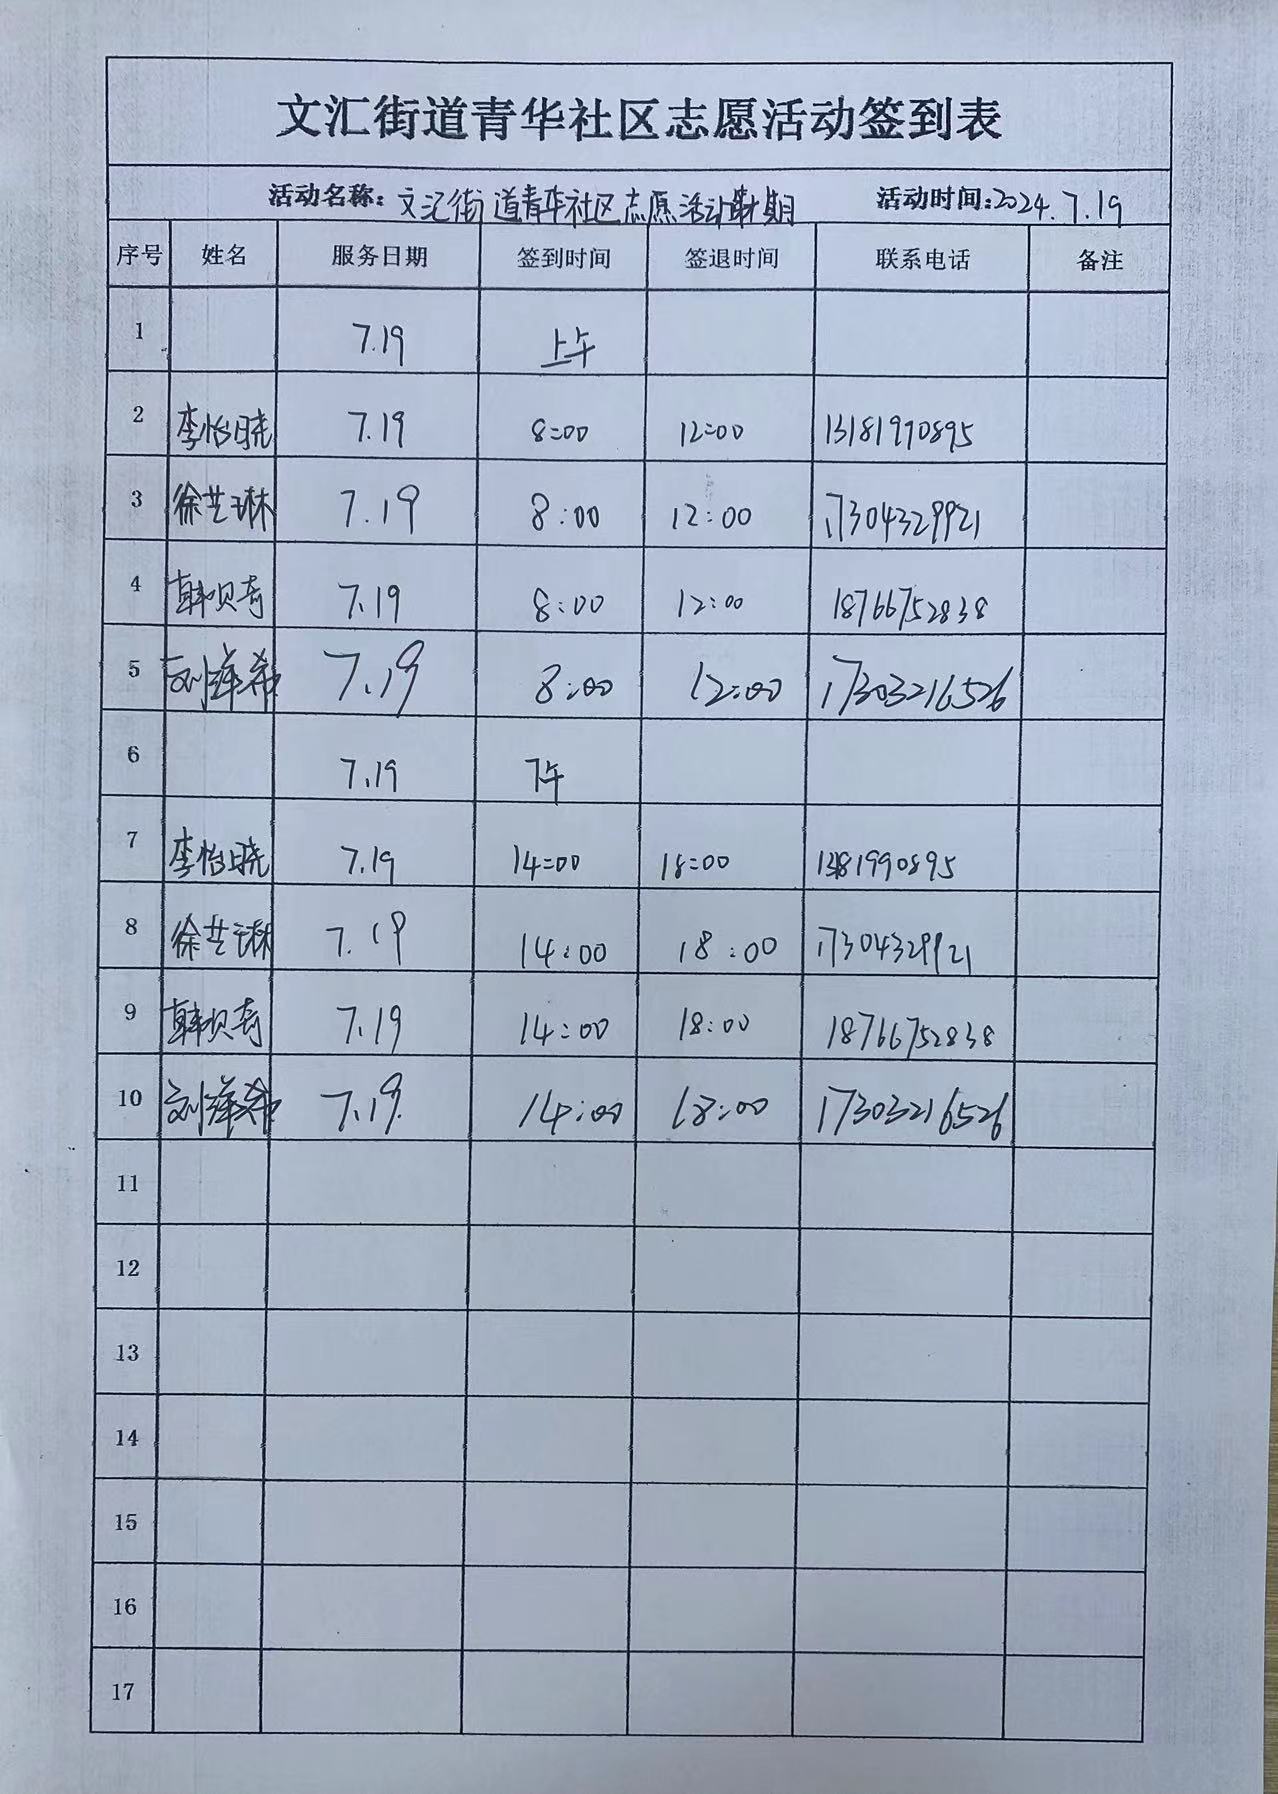 文汇街道青华社区志愿活动签到表
活动名称：文汇街道青华社区志愿活动 期 活动时间：2024.7.19
序号 姓名 服务日期 签到时间 签退时间 联系电话 备注
1 7.19 上午
2 李怡晓 7.19 8:00 12:00 13181990895
3 徐艺琳 7.19 8:00 12:00 17304329921
4 韩贝奇 7.19 8:00 12:00 18766752838
5 刘泽希 7.19 8:00 12:00 17303216526
6 7.19 下午
7 李怡晓 7.19 14:00 18:00 13181990895
8 徐艺琳 7.19 14:00 18:00 17304329921
9 韩贝奇 7.19 14:00 18:00 18766752838
10 刘泽希 7.19 14:00 18:00 17303216526
11
12
13
14
15
16
17